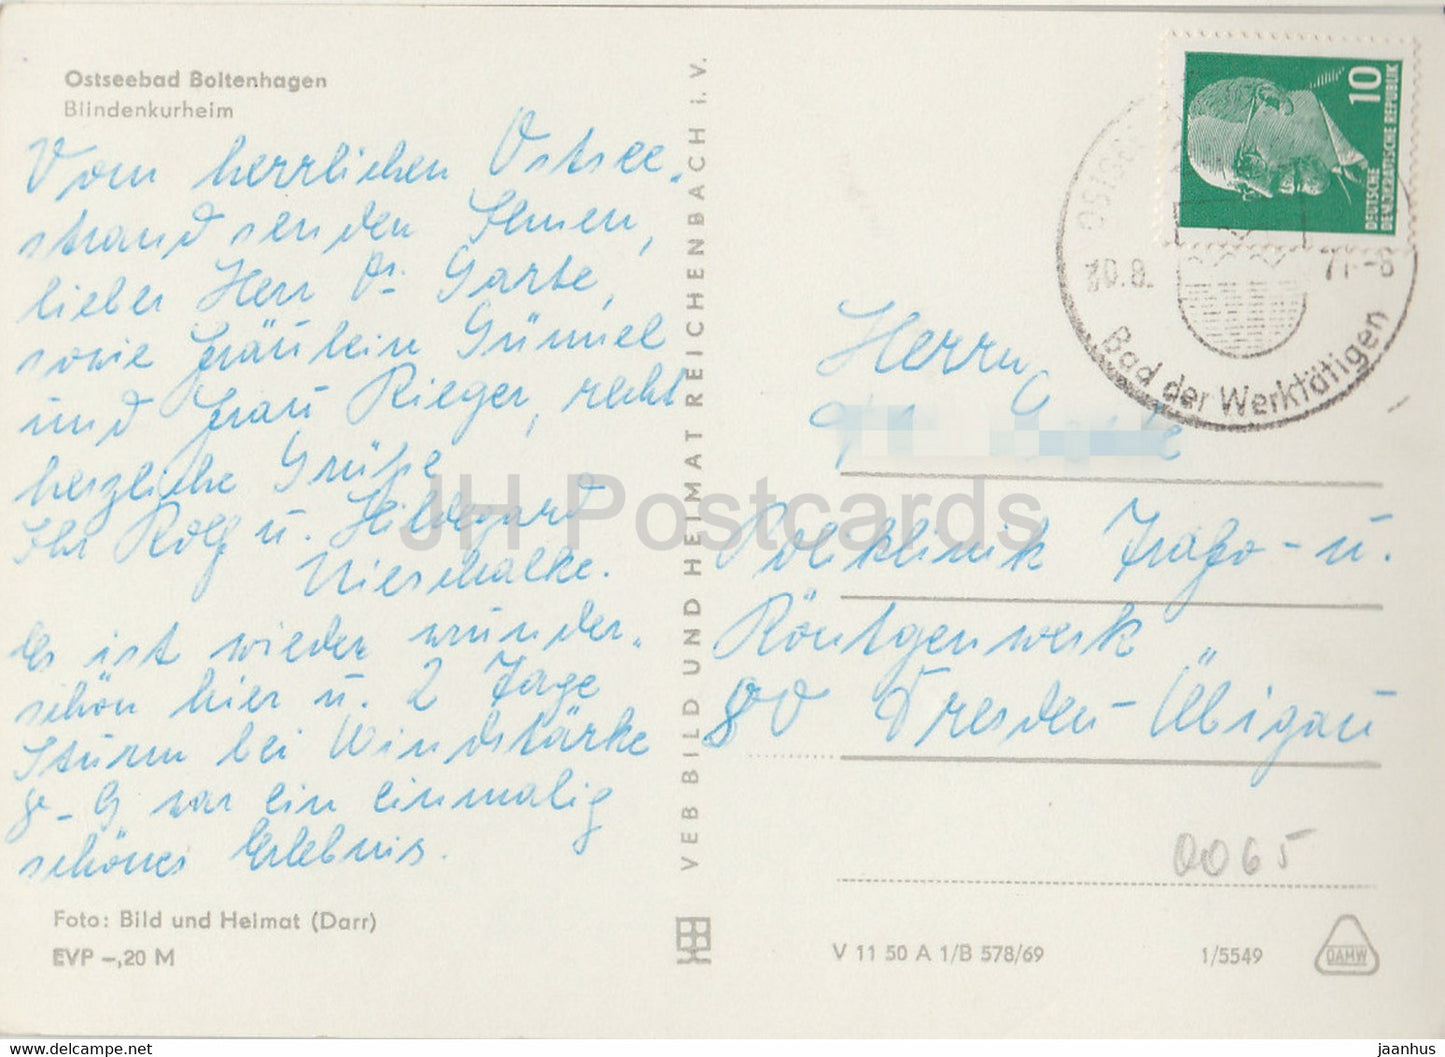 Ostseebad Boltenhagen
Blindenkurheim
Vom herrlichen Ostsee-
strand senden Ihnen,
lieber Herr Dr. Garte,
sowie Fräulein Günnel
und Frau Rieger, recht
herzliche Grüße
Ihr Rolf u. Hildegard
Nieschalke.
Es ist wieder wunder-
schön hier u. 2 Tage
Sturm bei Windstärke
8-9 war ein einmalig
schönes Erlebnis.
Foto: Bild und Heimat (Darr)
EVP –,20 M
VEB BILD UND HEIMAT REICHENBACH i. V.
10
DEUTSCHE
DEMOKRATISCHE REPUBLIK
30.8. 71-8
Bad der Werktätigen
Herrn
Poliklinik Trafo- u.
Röntgenwerk
80 Dresden-Übigau
0065
V 11 50 A 1/B 578/69
1/5549
DAMW
JH Postcards
delcampe.net
jaanhus